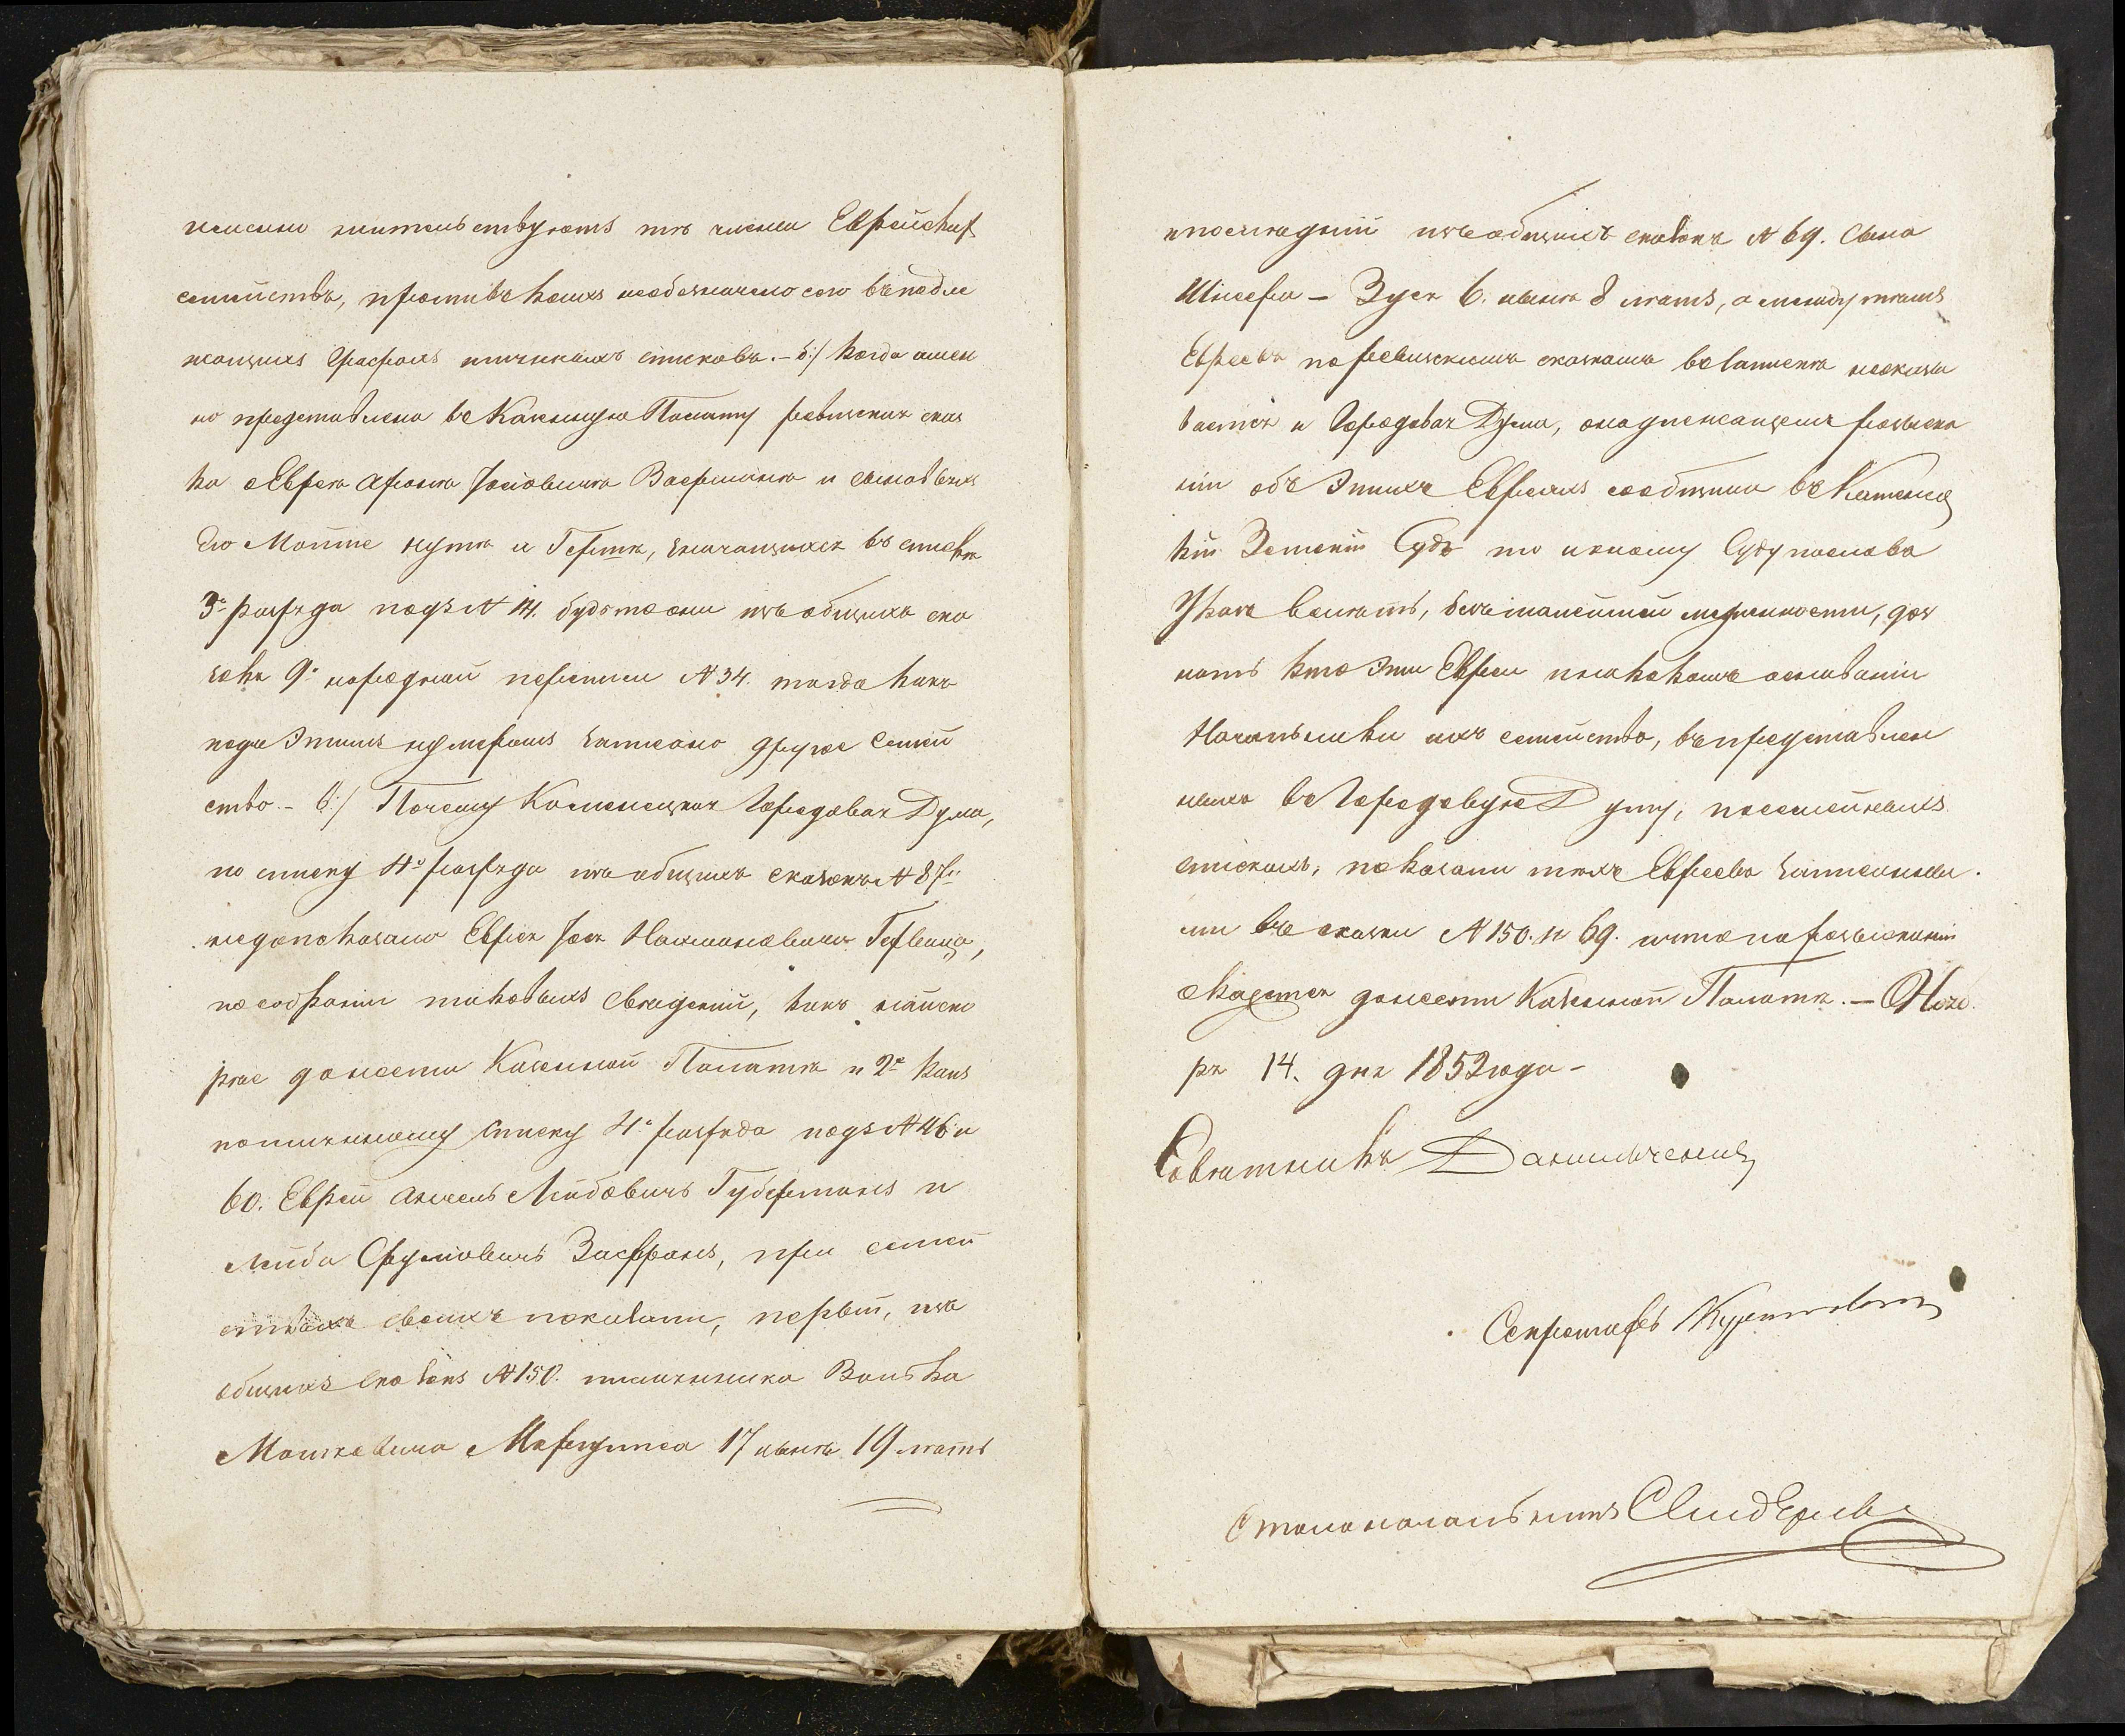 жительствуютъ тѣ члены Еврейских
семействъ, противъ коихъ необозначено сего въ подле
жащихъ графахъ имянныхъ списковъ. – б:/ когда имен
но представлена въ Казенную Палату ревизская сказ
ка о Евреѣ Аронѣ Іосіовичѣ Васерманѣ и сыновьяхъ
его Мошке Нутѣ и Гершкѣ, значащихся въ спискѣ
3го разряда подъ № 14. будто они изъ общихъ ска
зокъ 9й народной переписи № 34. тогда какъ
подъ этимъ нумеромъ записано другое семей
ство. – в:/ Почему Каменецкая Городовая Дума,
по списку 4го разряда изъ общихъ сказокъ № 87й
недопоказано Еврея Іося Нахмановича Гервица,
по собраніи таковыхъ свѣденій, какъ найско
рѣе донести Казенной Палатѣ и 2е какъ
по имянному списку 4го разряда подъ № 46 и
60. Еврей Анчель Лейбовичъ Губерманъ и
Лейба Сруліовичъ Зафранъ, при семей
ствахъ своихъ показали, первый, изъ
общихъ сказокъ № 150. племянника Волька
Мошковича 17 нынѣ 19 лѣтъ
а послѣдній изъ общихъ сказокъ № 69. сына
Зуся 6. нынѣ 8 лѣтъ, а между тѣмъ
Евреевъ по ревизскимъ сказкамъ вовсе
и Городовая Дума, о надлежащемъ розыска
ніи объ этихъ Евреяхъ сообщила въ Каменец
кій Земскій Судъ то и оному Суду послать
Указъ велѣть, безъ малейшей медленности, доз
нать кто эти Евреи и на какомъ основаніи
Начальники ихъ семейства, въ представлен
ныхъ въ Городовую Думу, посемейныхъ
спискахъ, показали тѣхъ Евреевъ записанны
ми въ сказки № 150. и 69. и что по розысканіи
окажется донести Казенной Палатѣ. – Нояб
ря 14. дня 1852 года –
Совѣтникъ Данильченко
Секретарь
Столоначальникъ